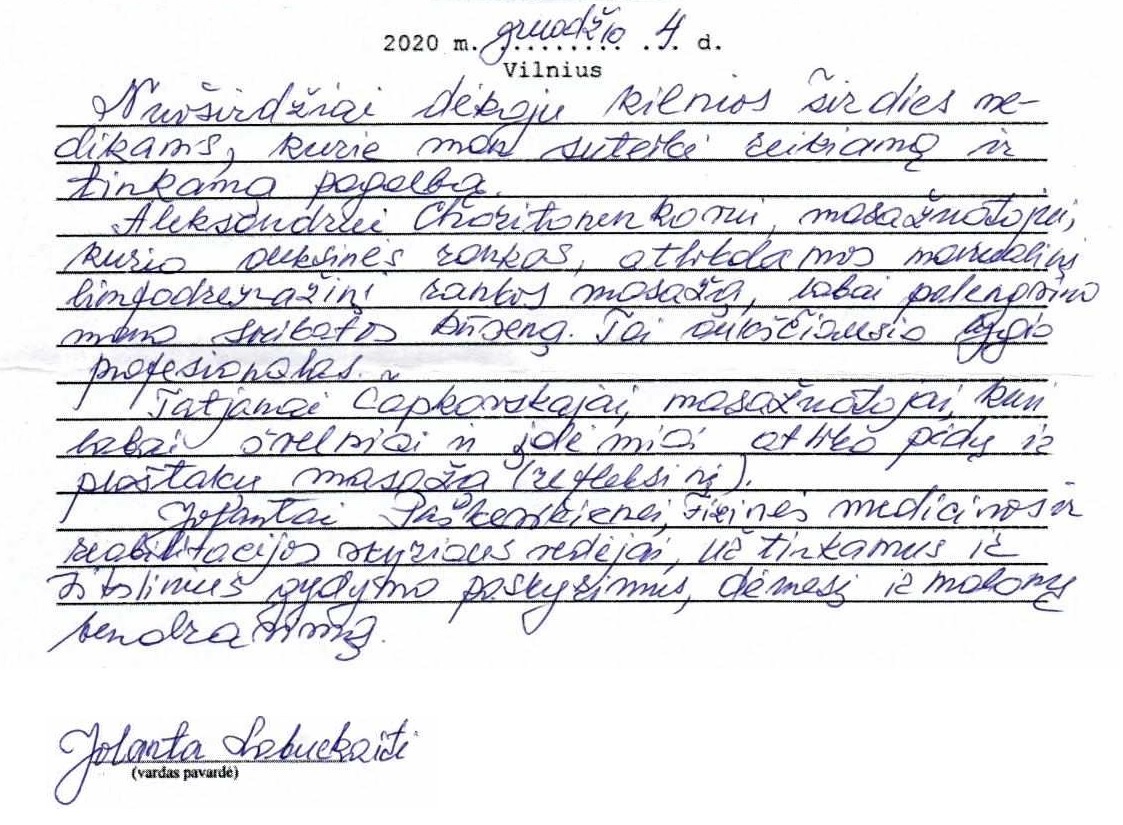 2020 m. gruodžio 4 d.
Vilnius
Nuoširdžiai dėkoju kilnios širdies me-
dikams, kurie man suteikė reikiamą ir
tinkamą pagalbą.
Aleksandrui Charitonenkovui, masažuotojui,
kurio auksinės rankos, atlikdamos manualinį
limfodrenažinį rankos masažą, labai palengvino
mano sveikatos būseną. Tai aukščiausio lygio
profesionalas.
Tatjanai Čapkovskajai, masažuotojai, kuri
labai švelniai ir įdėmiai atliko pėdų ir
plaštakų masažą (refleksinį).
Jolantai Fizinės medicinos ir
reabilitacijos skyriaus vedėjai, už tinkamus ir
gydymo paskyrimus, dėmesį ir malonų
bendravimą.
Jolanta Labuckaitė
(vardas pavardė)